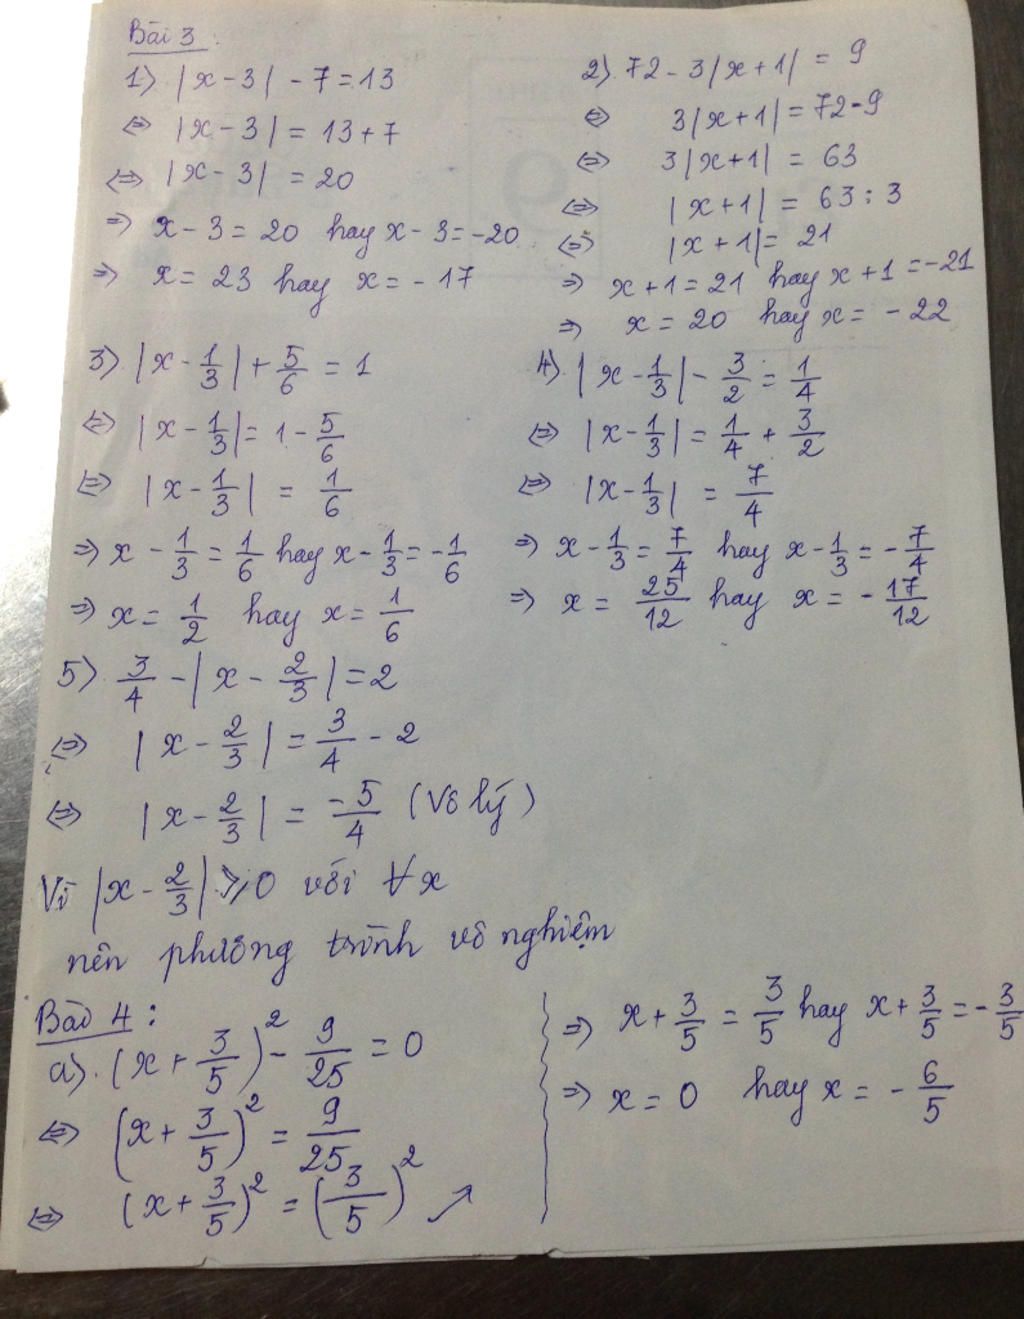 Bài 3:
1) |x - 3| - 7 = 13
⇔ |x - 3| = 13 + 7
⇔ |x - 3| = 20
⇒ x - 3 = 20 hay x - 3 = -20
⇒ x = 23 hay x = -17
2) 72 - 3|x + 1| = 9
⇔ 3|x + 1| = 72 - 9
⇔ 3|x + 1| = 63
⇔ |x + 1| = 63 : 3
⇔ |x + 1| = 21
⇒ x + 1 = 21 hay x + 1 = -21
⇒ x = 20 hay x = -22
3) |x - 1/3| + 5/6 = 1
⇔ |x - 1/3| = 1 - 5/6
⇔ |x - 1/3| = 1/6
⇒ x - 1/3 = 1/6 hay x - 1/3 = -1/6
⇒ x = 1/2 hay x = 1/6
4) |x - 1/3| - 3/2 = 1/4
⇔ |x - 1/3| = 1/4 + 3/2
⇔ |x - 1/3| = 7/4
⇒ x - 1/3 = 7/4 hay x - 1/3 = -7/4
⇒ x = 25/12 hay x = -17/12
5) 3/4 - |x - 2/3| = 2
⇔ |x - 2/3| = 3/4 - 2
⇔ |x - 2/3| = -5/4 (Vô lý)
Vì |x - 2/3| ≥ 0 với ∀x
nên phương trình vô nghiệm
Bài 4:
a). (x + 3/5)² - 9/25 = 0
⇔ (x + 3/5)² = 9/25
⇔ (x + 3/5)² = (3/5)² ↗
⇒ x + 3/5 = 3/5 hay x + 3/5 = -3/5
⇒ x = 0 hay x = -6/5